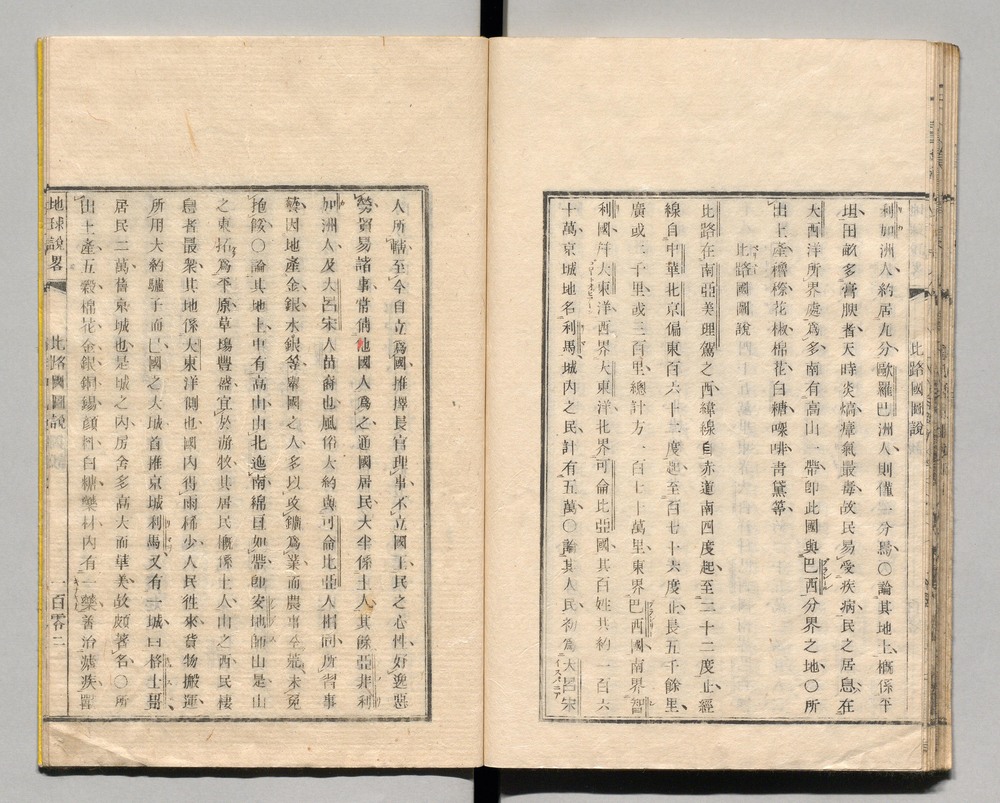 比路國圖說
利加洲人約居九分歐羅巴洲人則僅一分焉〇論其地土槪係平
坦田畝多膏腴者天時炎熇瘴氣最毒故民易受疾病民之居息在
大西洋所界處爲多南有高山一帶卽此國與巴西分界之地〇所
出土產穭檪花椒棉花白糖㗎啡靑黛等
比路國圖說
比路在南亞美理駕之西緯線自赤道南四度起至二十二度止經
線自中華北京偏東百六十二度起至百七十六度止長五千餘里
廣或二千里或三百里總計方一百七十萬里東界巴西國南界智
利國幷大東洋西界大東洋北界可侖比亞國其百姓共約一百六
十萬京城地名利馬城內之民計有五萬〇論其人民初爲大呂宋
イスパニア
人所轄至今自立爲國推擇長官理事不立國王民之心性好逸惡
勞貿易諸事常倩他國人爲之通國居民大半係土人其餘亞非利
加洲人及大呂宋人苗裔也風俗大約與可侖比亞人相同所習事
藝因地產金銀水銀等寧國之人多以攻鑛爲業而農事至荒未免
拖餒〇論其地土中有高山由北迤南綿亘如帶卽安地師山是山
之東拓爲平原草場豐盛宜於游牧其居民槪係土人山之西民棲
息者最衆其地係大東洋側也國內得雨稀少人民往來貨物搬運
所用大約驢于而已國之大城首推京城利馬又有一城曰格士哥
居民二萬舊京城也是城之內房舍多高大而華美故頗著名〇所
出土產五穀棉花金銀銅錫顏料白糖藥材內有一藥善治瘧疾醫
地球說畧
比路國圖說
一百零二